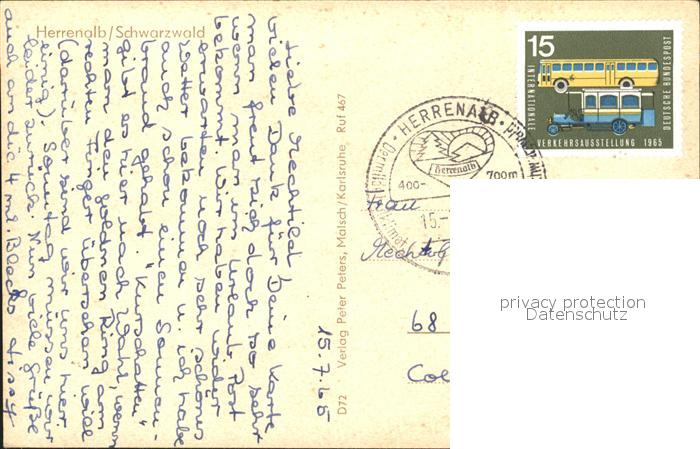 Herrenalb/Schwarzwald
15.7.65
Liebe Mechtild
vielen Dank für Deine Karte
man freut sich doch so sehr
wenn man im Urlaub Post
bekommt. Wir haben wider
erwarten noch sehr schönes
Wetter bekommen u. ich habe
auch schon einen Sonnen-
brand gehabt. "Kurschatten"
gibt es hier nach Wahl, wenn
man den goldnen Ring am
rechten Finger übersehen will
(darüber sind wir uns hier
einig). Sonntag müssen wir
leider zurück. Nun viele Grüße
auch an die 4 ml. Blechs
D72 Verlag Peter Peters, Malsch/Karlsruhe, Ruf 467
15
INTERNATIONALE
VERKEHRSAUSSTELLUNG 1965
DEUTSCHE BUNDESPOST
HERRENALB
Herrenalb
400-
700m
15.-
Frau
68
privacy protection
Datenschutz